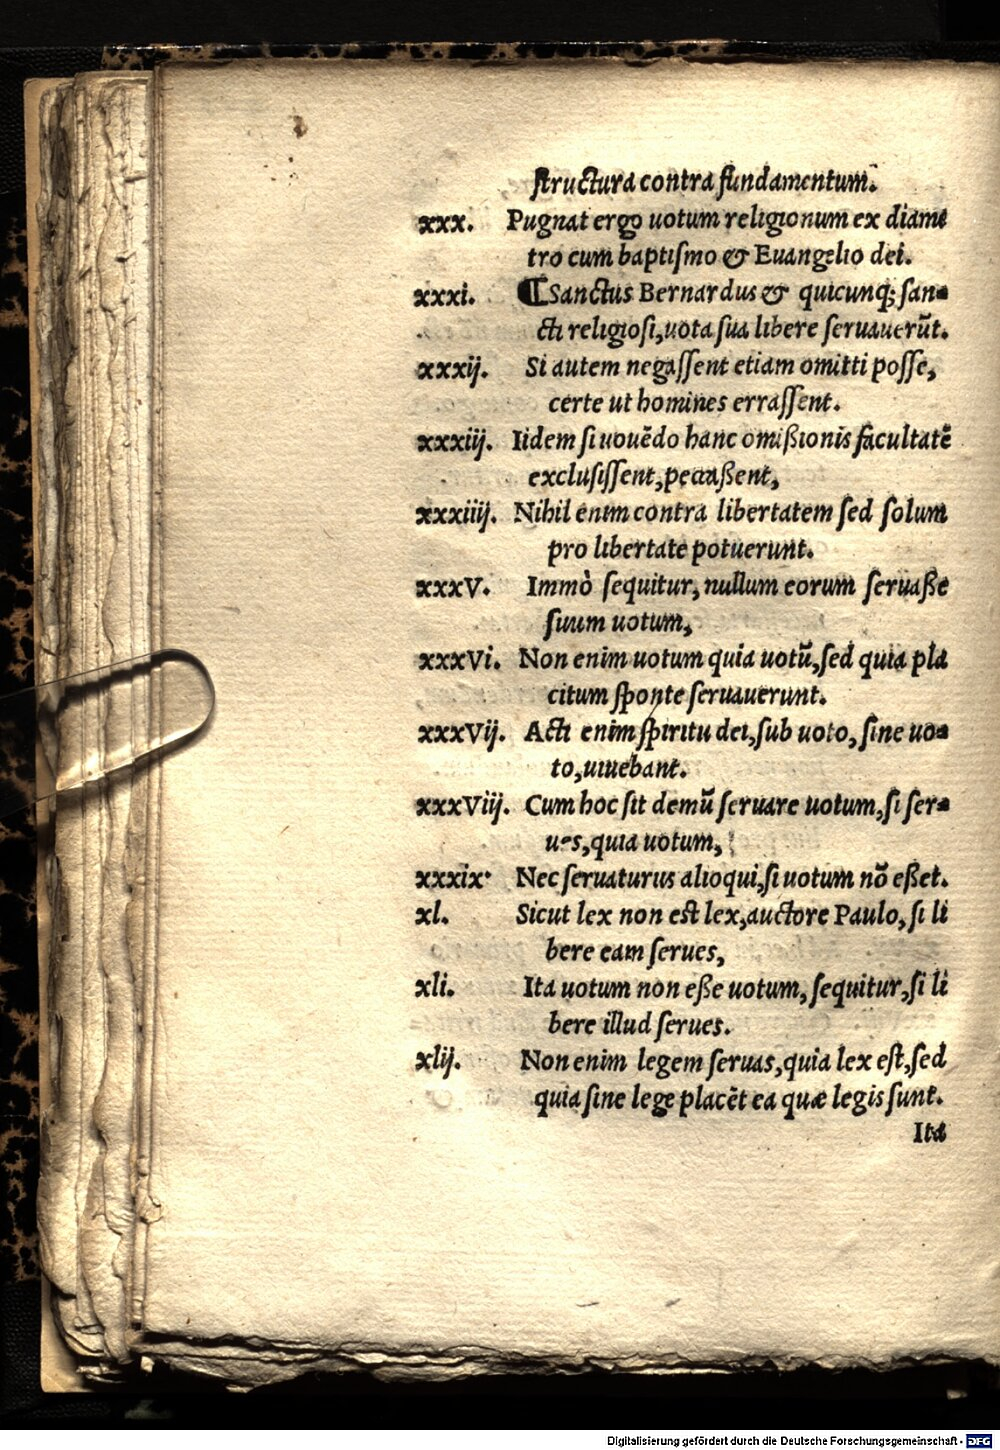 ſtructura contra fundamentum.
xxx. Pugnat ergo uotum religionum ex diame
tro cum baptiſmo & Euangelio dei.
xxxi. ¶Sanctus Bernardus & quicunq; ſan-
cti religioſi, uota ſua libere ſeruauerūt.
xxxij. Si autem negaſſent etiam omitti poſſe,
certe ut homines erraſſent.
xxxiij. Iidem ſi uouēdo hanc omißionis facultatē
excluſiſſent, peccaßent,
xxxiiij. Nihil enim contra libertatem ſed ſolum
pro libertate potuerunt.
xxxV. Immò ſequitur, nullum eorum ſeruaße
ſuum uotum,
xxxVi. Non enim uotum quia uotū, ſed quia pla
citum ſponte ſeruauerunt.
xxxVij. Acti enim ſpiritu dei, ſub uoto, ſine uo-
to, uiuebant.
xxxViij. Cum hoc ſit demū ſeruare uotum, ſi ſer-
ues, quia uotum,
xxxix. Nec ſeruaturus alioqui, ſi uotum nō eßet.
xl. Sicut lex non est lex, auctore Paulo, ſi li
bere eam ſerues,
xli. Ita uotum non eße uotum, ſequitur, ſi li
bere illud ſerues.
xlij. Non enim legem ſeruas, quia lex eſt, ſed
quia ſine lege placēt ea quæ legis ſunt.
Ita
Digitalisierung gefördert durch die Deutsche Forschungsgemeinschaft - DFG